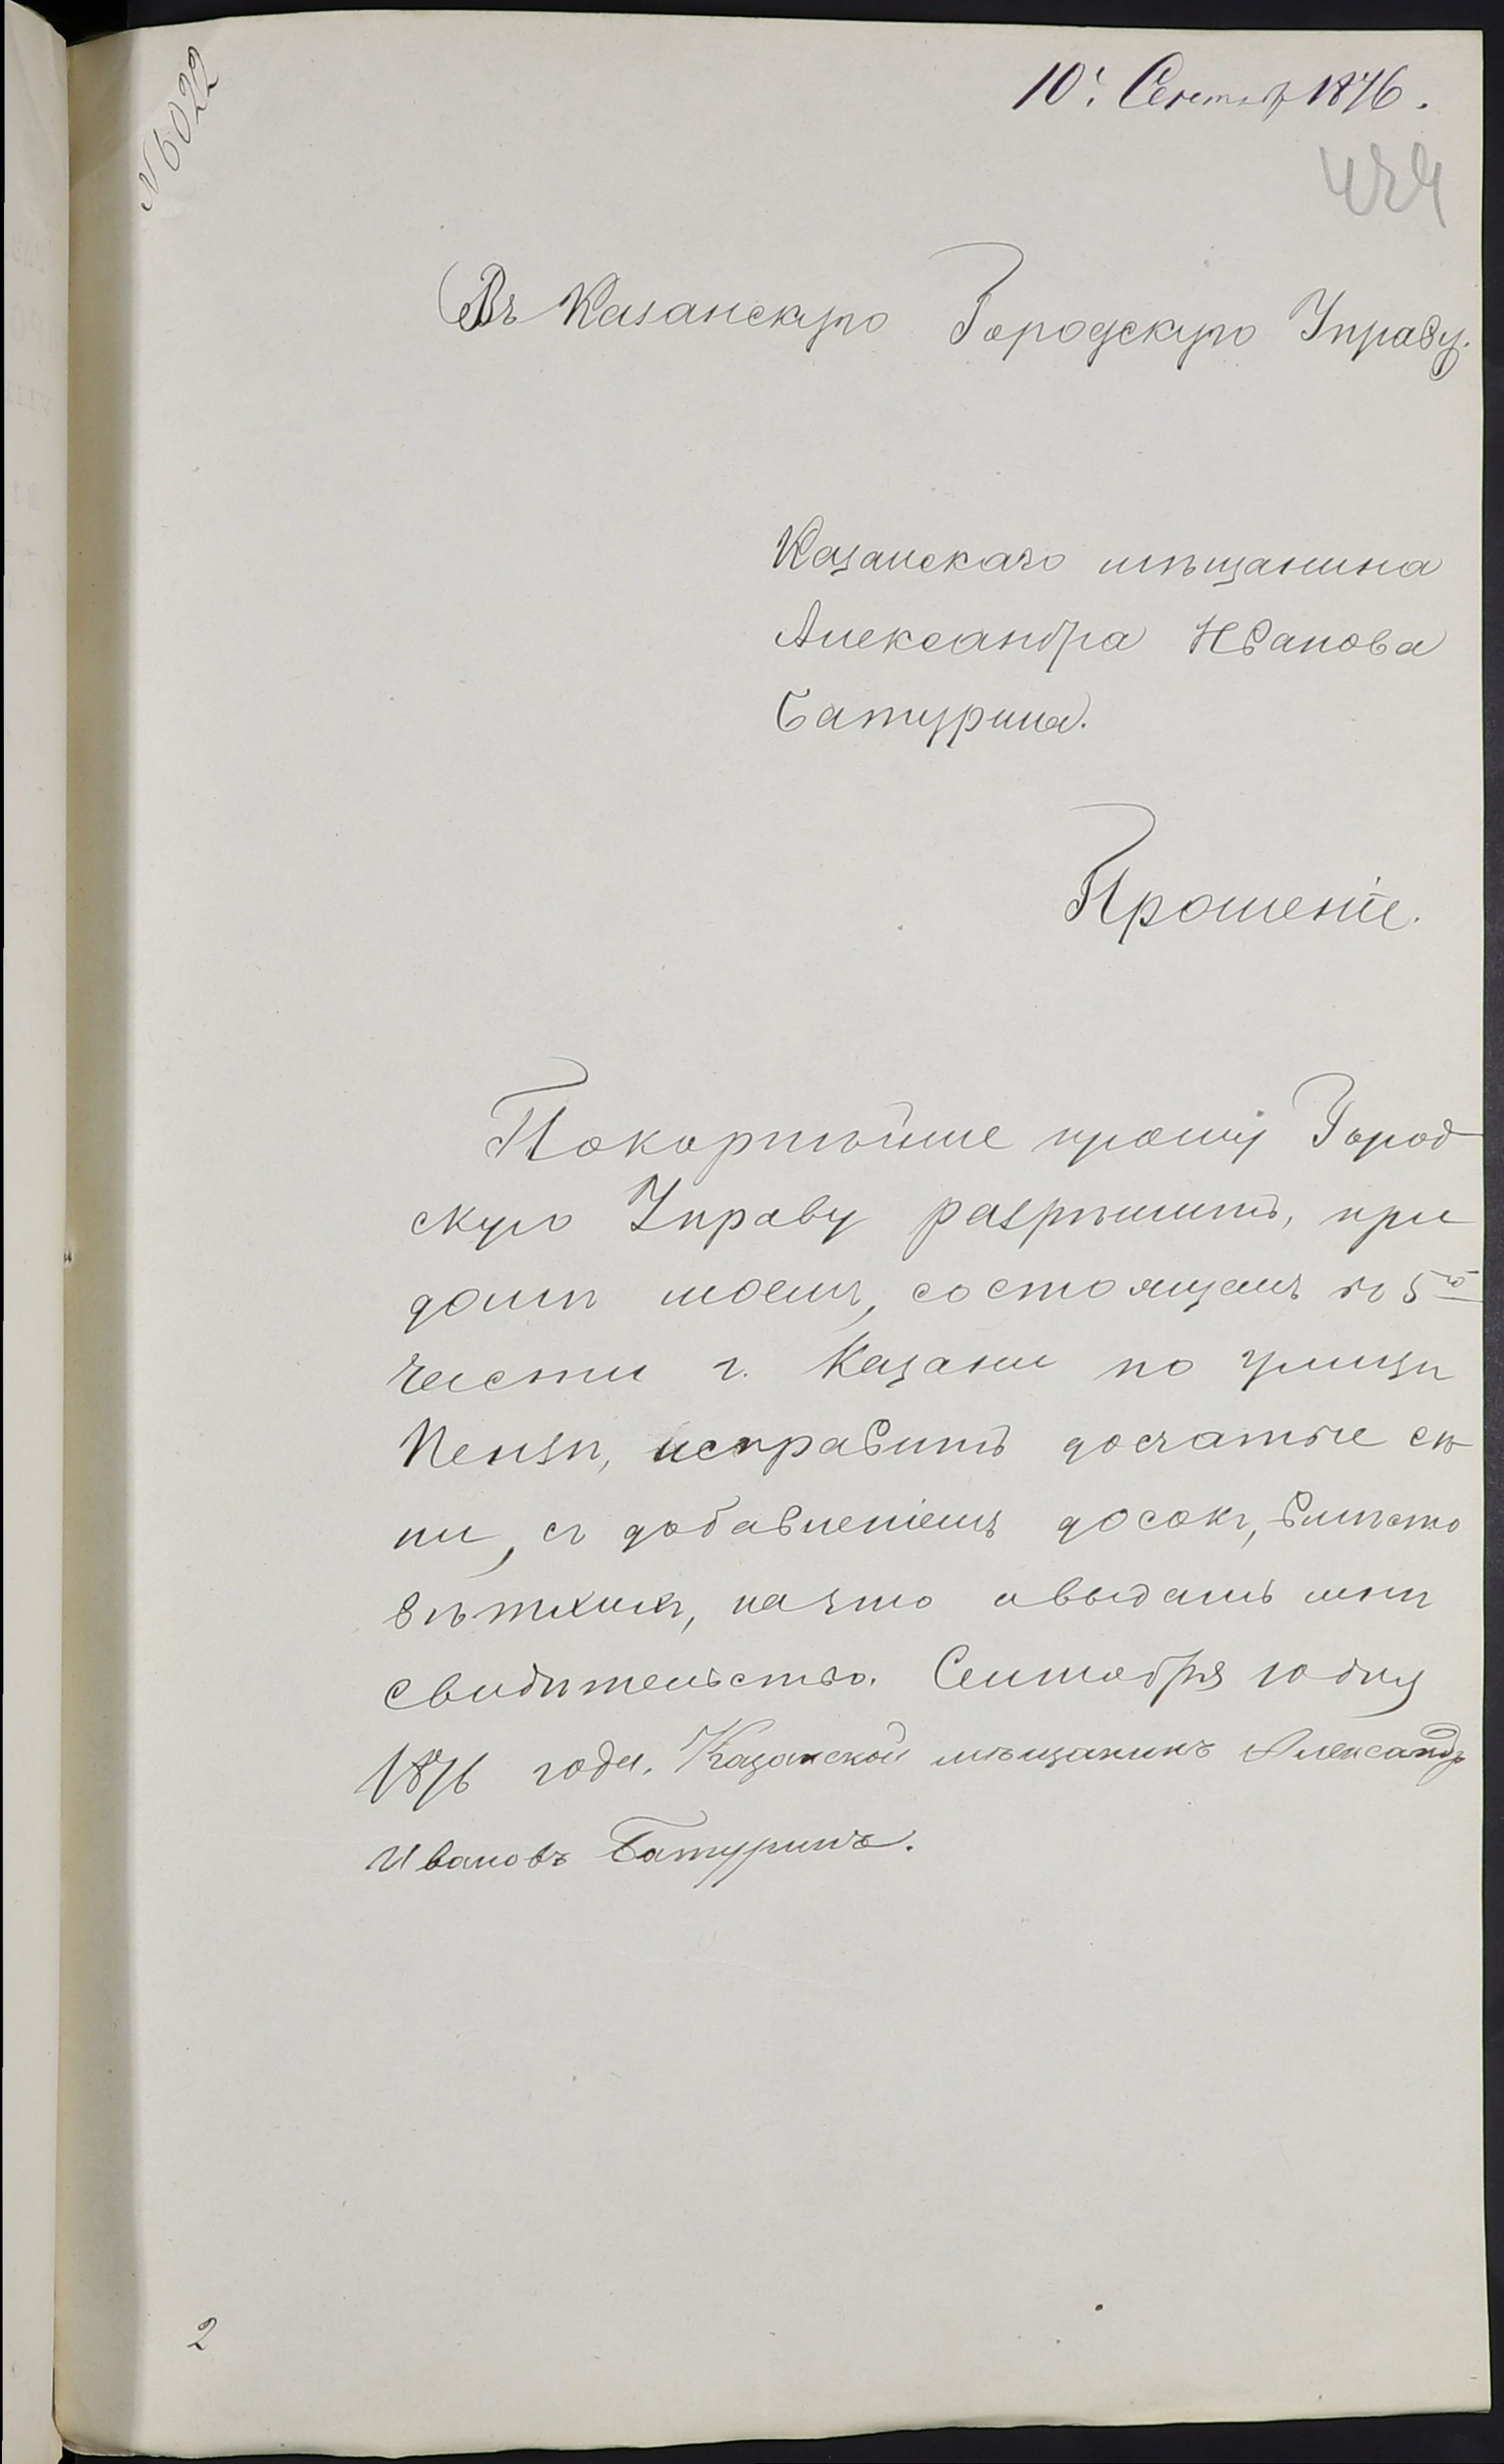 № 6022
10. Сентябр 1876.
424
Въ Казанскую Городскую Управу.
Казанскаго мѣщанина
Александра Иванова
Батурина.
Прошеніе.
Покорнѣйше прошу Город
скую Управу разрѣшить, при
домѣ моемъ, состоящемъ въ 5ой
части г. Казани по улицѣ
исправить досчатые сѣ
ни, съ добавленіемъ досокъ, вмѣсто
вѣтхихъ, на что и выдать мнѣ
свидѣтельство. Сентября 10 дня
1876 года. Казанской мѣщанинъ Александръ
Ивановъ Батуринъ.
2